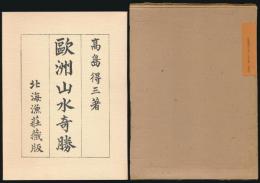 高島得三著
歐洲山水奇勝
北海漁莊藏版